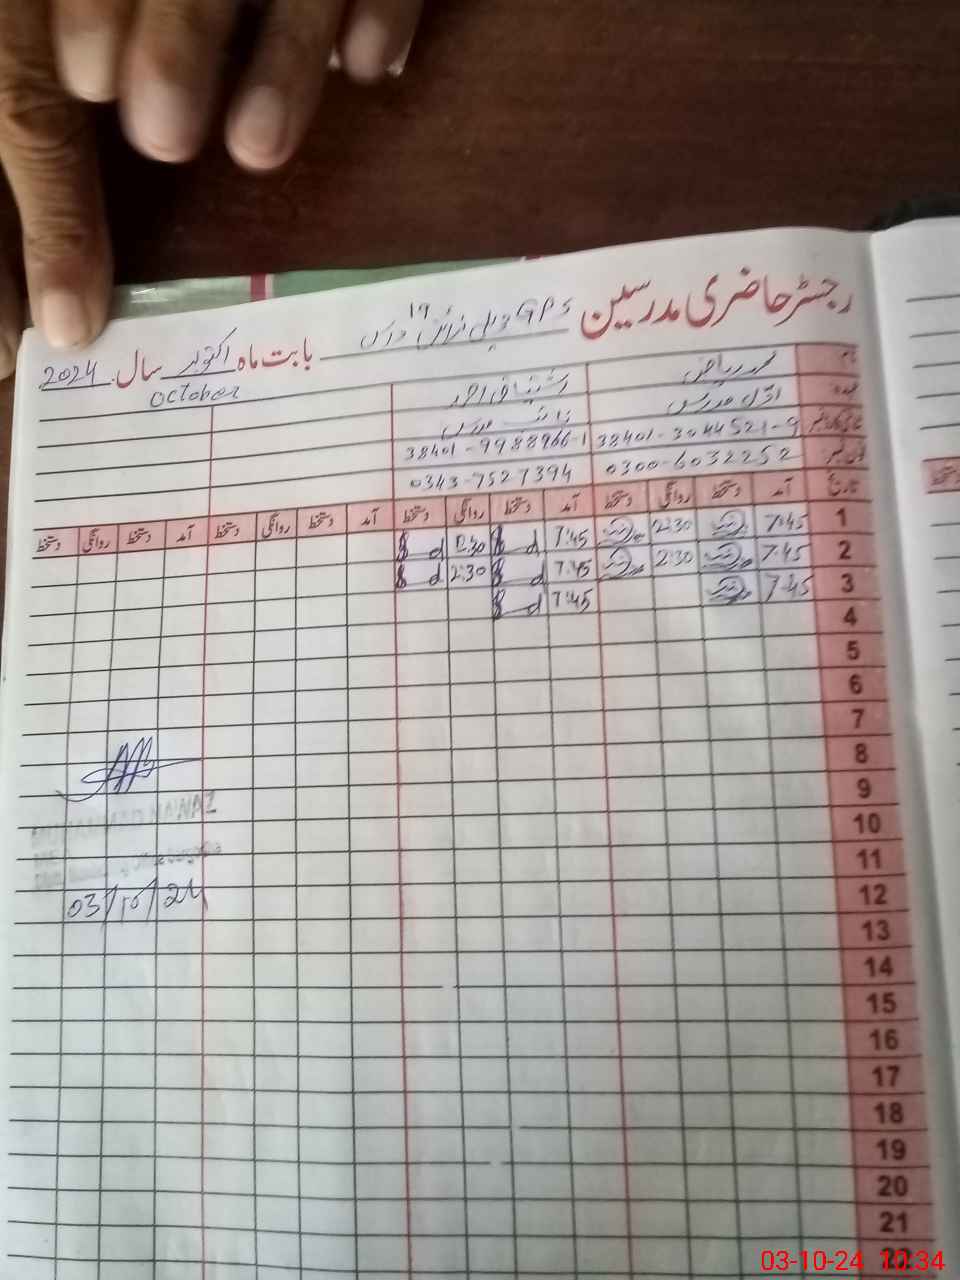 رجسٹر حاضری مدرسین GPS بابت ماہ اکتوبر سال 2024
October
نام محمد ریاض اشتیاق احمد
عہدہ اوّل مدرس نائب مدرس
شناختی کارڈ نمبر 38401-3044521-9 38401-9988966-1
فون نمبر 0300-6032252 0343-7527394
تاریخ آمد دستخط روانگی دستخط آمد دستخط روانگی دستخط آمد دستخط روانگی دستخط آمد دستخط روانگی دستخط
1 7:45 2:30 7:45 2:30
2 7:45 2:30 7:45 2:30
3 7:45 7:45
4
5
6
7
8
9
10
11
12
13
14
15
16
17
18
19
20
21
22
MUHAMMAD NAWAZ
03/10/24
03-10-24 10:34